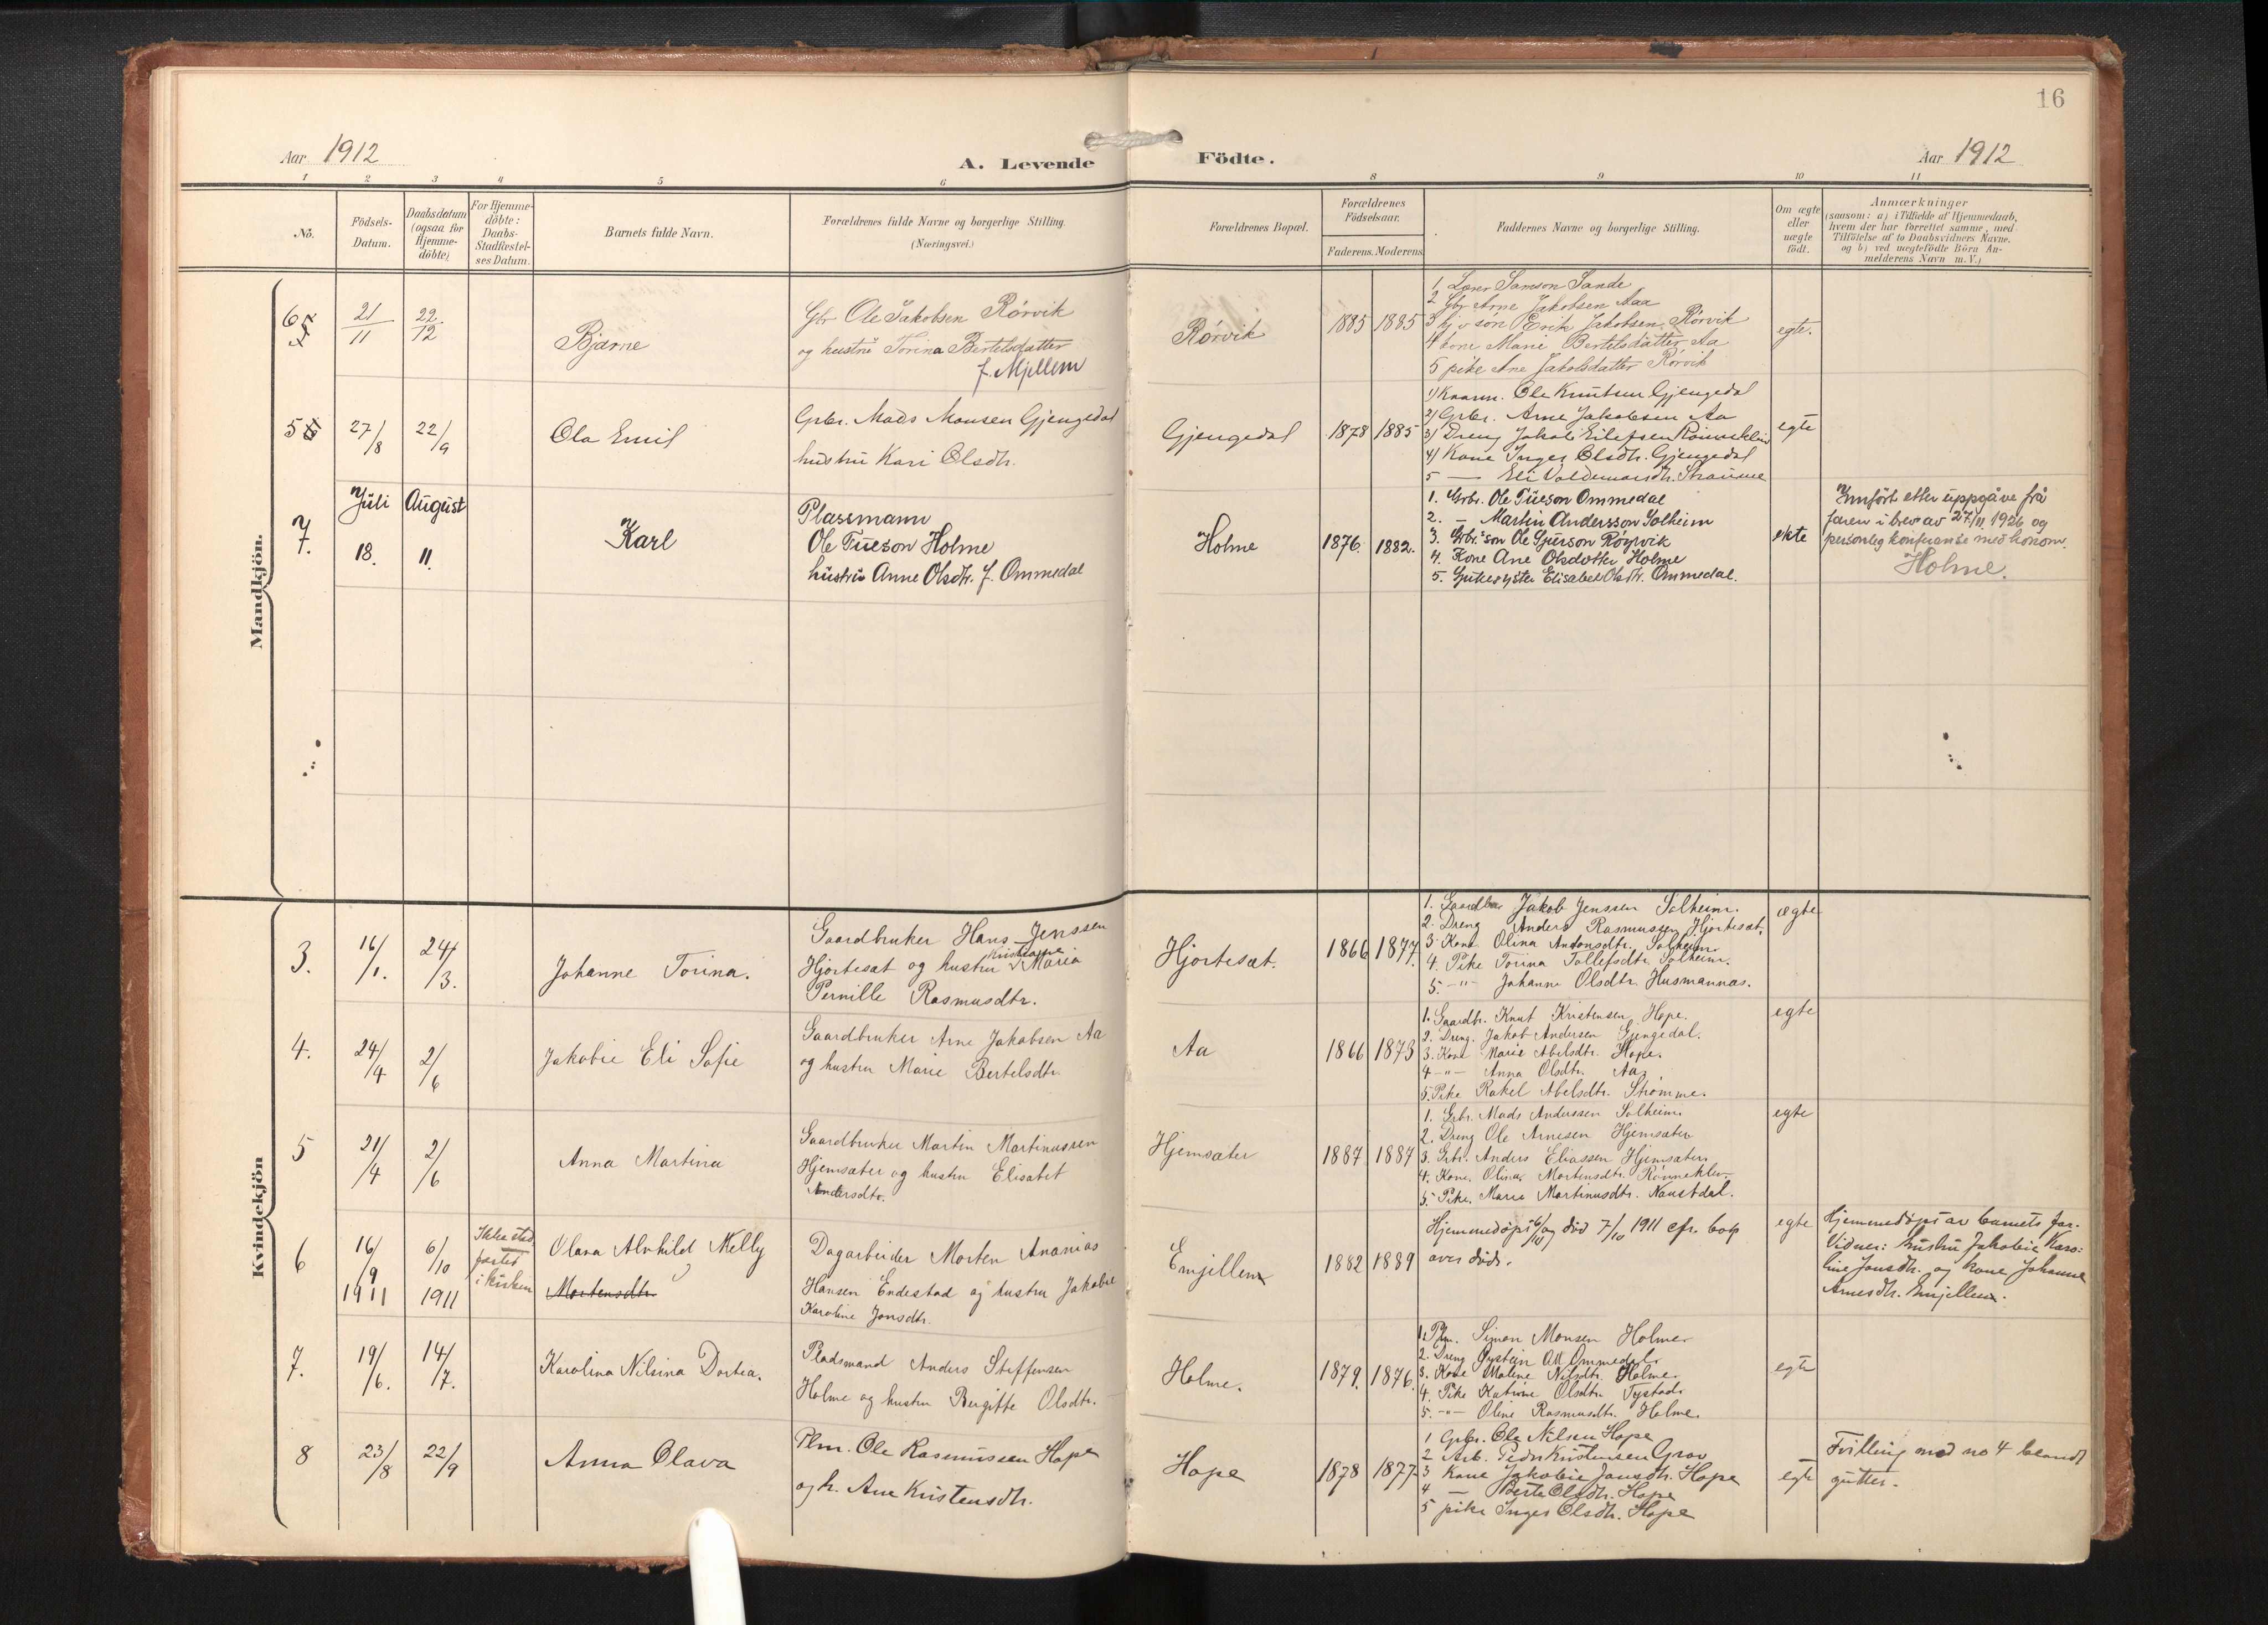 16
Aar 1912
A. Levende Födte.
Aar 1912
1 2 3 4 5 6 8 9 10 11
No.
Födsels-
Datum.
Daabsdatum
(ogsaa for
Hjemme-
döbte)
For Hjemme-
döbte:
Daabs-
Stadfæstel-
ses Datum.
Barnets fulde Navn.
Forældrenes fulde Navne og borgerlige Stilling.
(Næringsvei.)
Forældrenes Bopæl.
Forældrenes
Födselsaar.
Faderens. Moderens.
Faddernes Navne og borgerlige Stilling.
Om ægte
eller
uægte
födt.
Anmærkninger
(saasom: a) i Tilfælde af Hjemmedaab,
hvem der har forrettet samme, med
Tilföielse af to Daabsvidners Navne.
og b) ved uægtefödte Börn An-
melderens Navn m. V.)
Mandkjön.
6
21/11
22/12
Bjarne
Gbr Ole Jakobsen Rørvik
og hustru Torina Bertelsdatter
f. Mjellem
Rørvik
1885 1885
1 Lærer Samson Sande
2 Gbr Arne Jakobsen Aa
3 søn Erik Jakobsen Rørvik
4 kone Marie Bertelsdatter Aa
5 pike Ane Jakobsdatter Rørvik
egte.
5
27/8
22/9
Ola Emil
Grbr. Mads Monsen Gjengedal
hustru Kari Olsdtr.
Gjengedal
1878 1885
1) Kaarm. Ole Knutsen Gjengedal
2) Grbr. Arne Jakobsen Aa
3) Dreng Jakob Eilefsen Rønneklev
4) Kone Inger Olsdtr. Gjengedal
5 — Eli Valdemarsdtr. Straumme
egte
7.
Juli
18.
August
11.
Karl
Plassmann
Ole Tueson Holme
hustru Anne Olsdtr. f. Ommedal
Holme
1876. 1882.
1. Grbr. Ole Tueson Ommedal
2. – Martin Andersson Solheim
3. Grbr.'son Ole Gjurson Röyrvik
4. Kone Ane Olsdotter Holme
5. Gjitesyster Elisabet Olsdtr. Ommedal.
ekte
Innfört etter uppgåve frå
faren i brev av 27/11 1926 og
personleg konferanse med honom.
Holme.
Kvindekjön
3.
16/1.
24/3.
Johanne Torina.
Gaardbruker Hans Jenssen
Hjortesæt og hustru Kristianne Maria
Pernille Rasmusdtr.
Hjortesæt.
1866 1877.
1. Gaardbr. Jakob Jenssen Solheim.
2. Dreng Anders Rasmussen Hjortesæt.
3. Kone Olina Antonsdtr. Solheim
4. Pike Torina Tollefsdtr. Solheim.
5. -"- Johanne Olsdtr. Husmannas.
ægte
4.
24/4
2/6
Jakobie Eli Sofie
Gaardbruker Arne Jakobsen Aa
og hustru Marie Bertelsdtr.
Aa
1866 1873
1. Gaardbr. Knut Kristensen Hope.
2. Dreng. Jakob Andersen Gjengedal.
3. Kone Marie Abelsdtr. Hope.
4 -"- Anna Olsdtr. Aa.
5. Pike Rakel Abelsdtr. Strømme.
egte
5
21/4
2/6
Anna Martina
Gaardbruker Martin Martinussen
Hjemsæter og hustru Elisabet
Andersdtr.
Hjemsæter
1887 1887
1. Grbr. Mads Anderssen Solheim
2. Dreng Ole Arnesen Hjemsæter
3. Grbr. Anders Eliassen Hjemsæter
4. Kone Olina Martinsdtr. Rønneklev
5. Pike. Marie Martinusdtr. Naustdal.
egte
6
16/9
1911
6/10
1911
Ikke stad
fæstet
i kirken
Olava Alvhild Nelly
Mortensdtr.
Dagarbeider Morten Ananias
Hansen Endestad og hustru Jakobie
Karoline Jonsdtr.
Emjellem
1882 1889
Hjemmedøpt 6/10 og død 7/10 1911 cfr. bok
over døde.
egte
Hjemmedøpt av barnets far.
Vidner: hustru Jakobie Karo-
line Jonsdtr. og kone Johanne
Arnesdtr. Emjellem.
7.
19/6.
14/7.
Karolina Nilsina Dortea.
Pladsmand Anders Steffensen
Holme og hustru Bergitte Olsdtr.
Holme.
1879. 1876.
1. Plm. Simon Monsen Holme
2. Dreng Øystein Ommedal
3. Kone Malene Nilsdtr. Holme.
4. Pike Katrine Olsdtr. Tystad
5. -"- Oline Rasmusdtr. Holme.
egte
8
23/8
22/9
Anna Olava
Plm. Ole Rasmussen Hope
og h. Ane Kristensdtr.
Hope
1878 1877
1 Grbr. Ole Nilsen Hope
2 Arb. Peder Kristensen Grov
3 Kone Jakobie Jonsdtr. Hope
4 — Berte Olsdtr. Hope
5 pike Inger Olsdtr. Hope
egte
Tvilling med no 4 blandt
gutter.